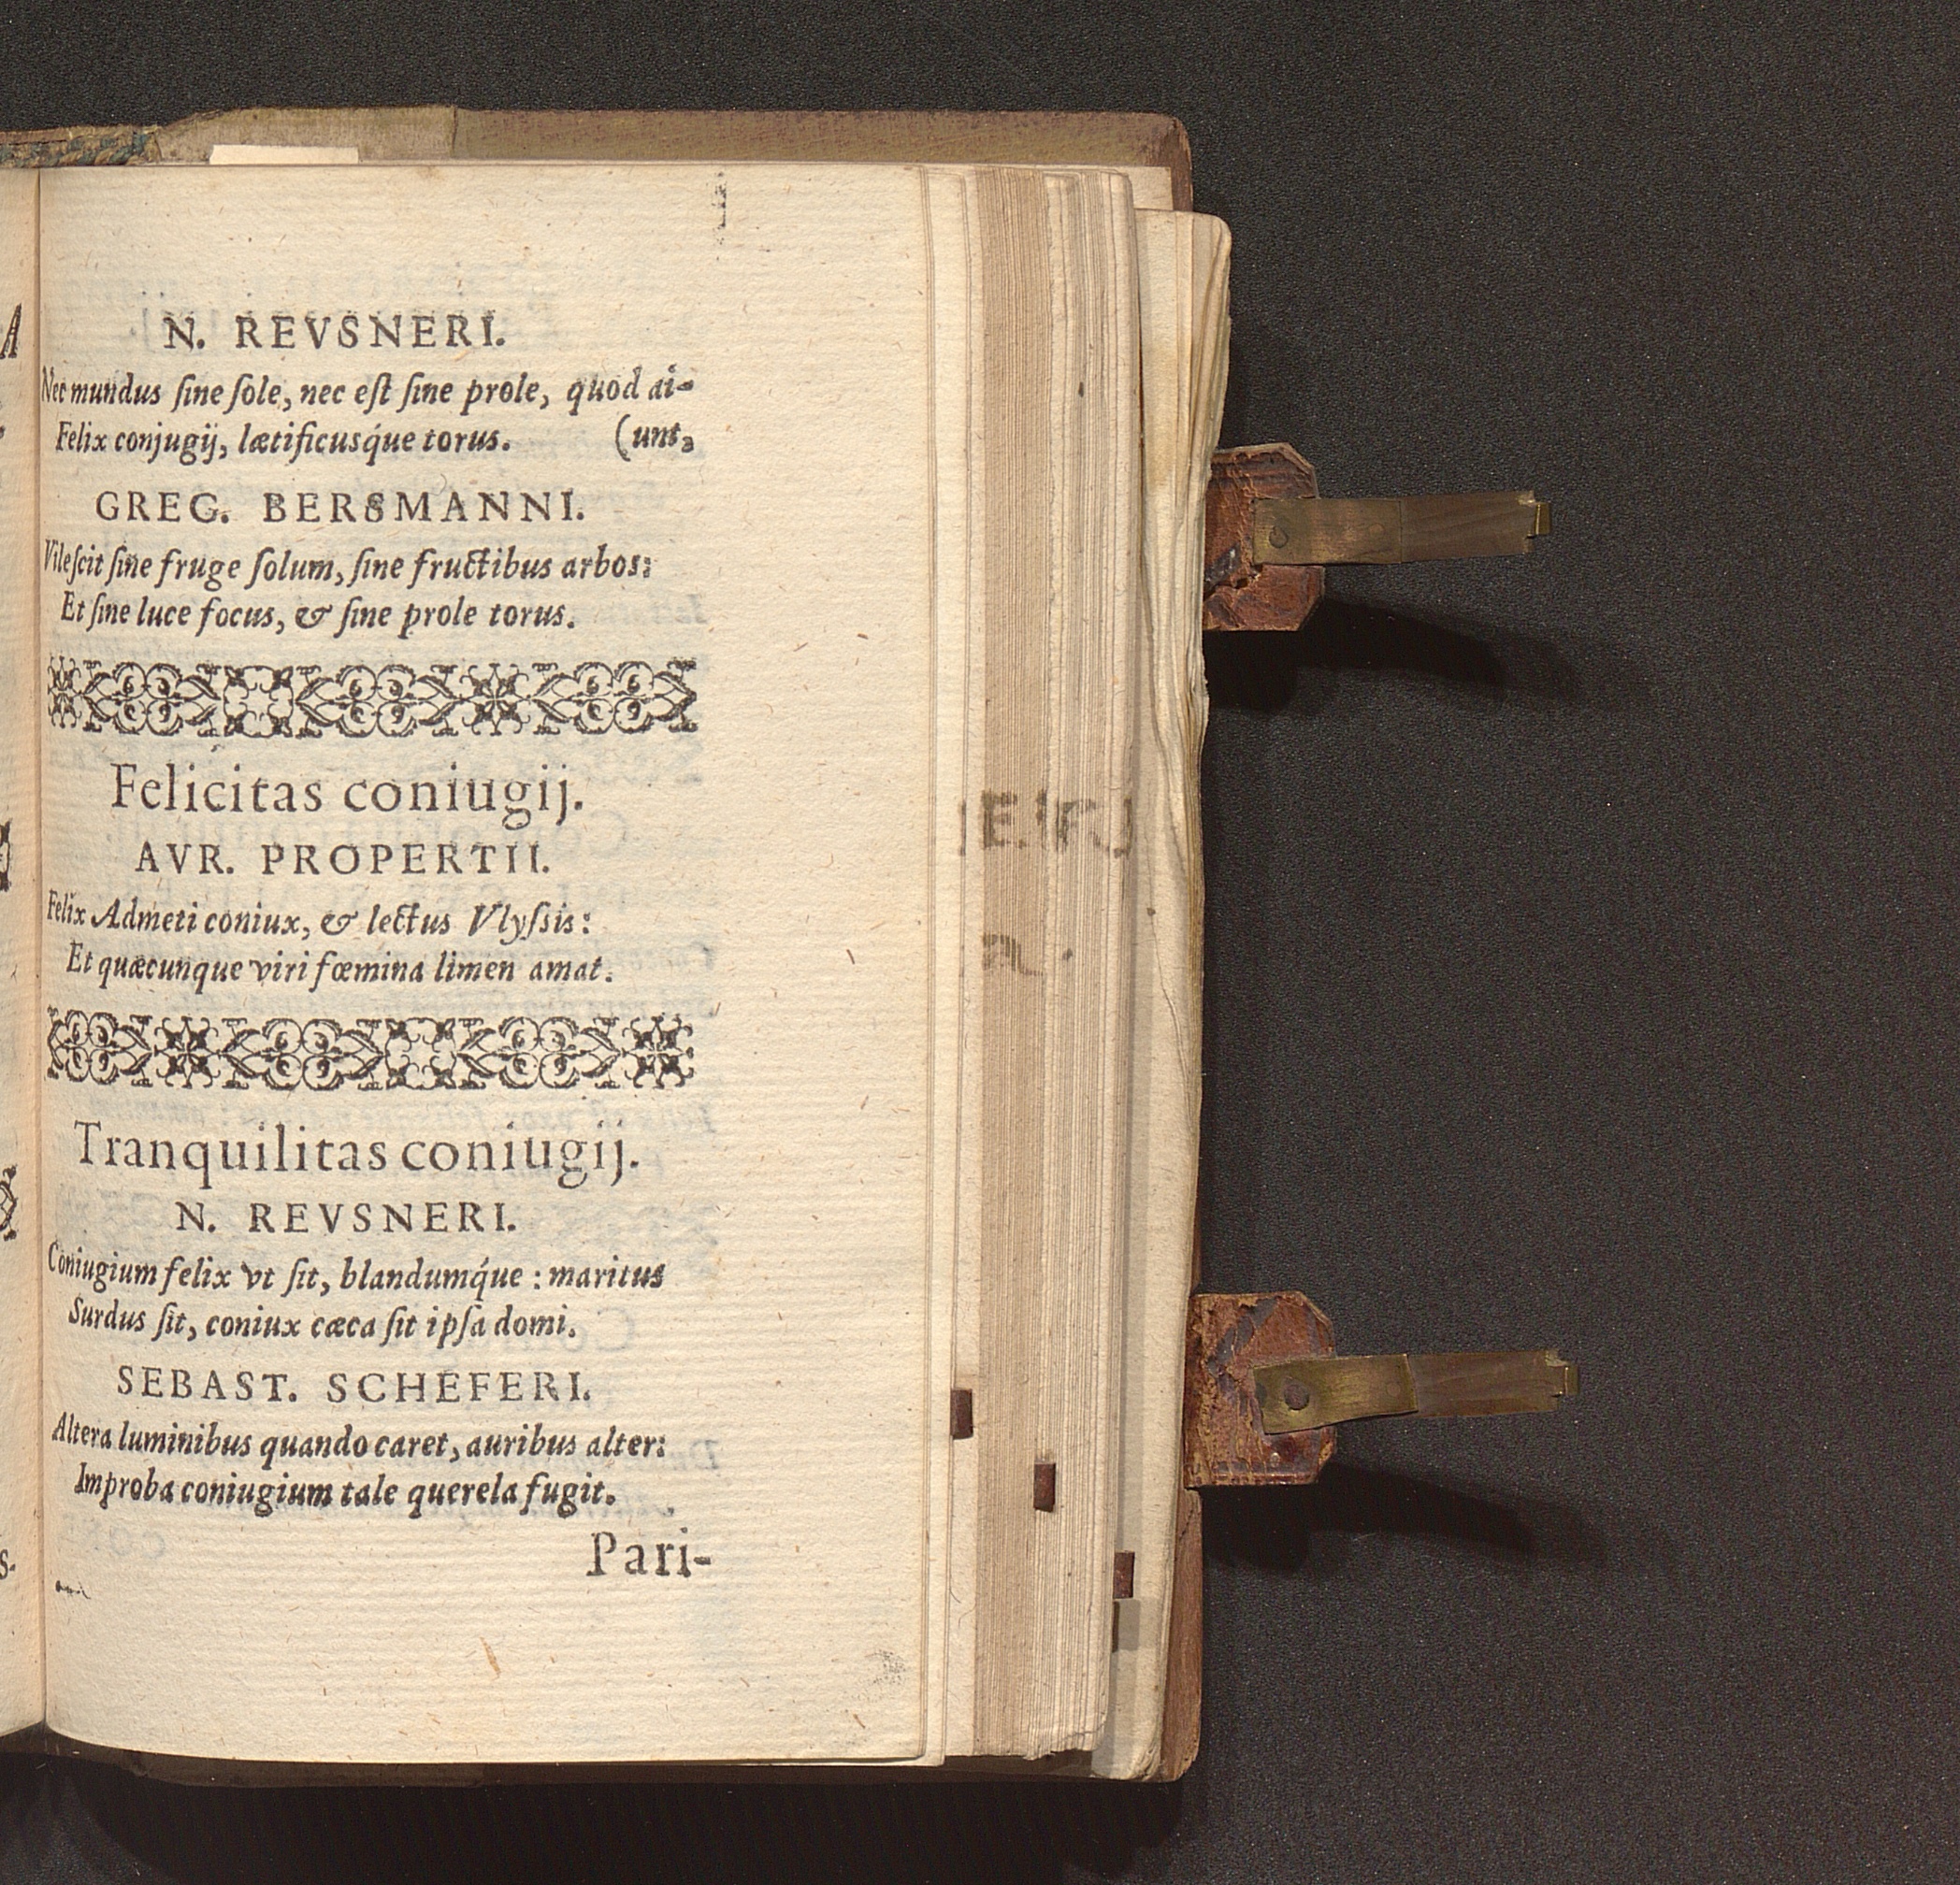 N. REVSNERI.
Nec mundus ſine ſole, nec eſt ſine prole, quod ai-
Felix conjugij, lætificusq́ue torus. (unt,
GREG. BERSMANNI.
Vileſcit ſine fruge ſolum, ſine fructibus arbos:
Et ſine luce focus, & ſine prole torus.
Felicitas coniugij.
AVR. PROPERTII.
Felix Admeti coniux, & lectus Vlyſsis:
Et quæcunque viri fœmina limen amat.
Tranquilitas coniugij.
N. REVSNERI.
Coniugium felix vt ſit, blandumq́ue : maritus
Surdus ſit, coniux cæca ſit ipſa domi.
SEBAST. SCHEFERI.
Altera luminibus quando caret, auribus alter:
Improba coniugium tale querela fugit.
Pari-